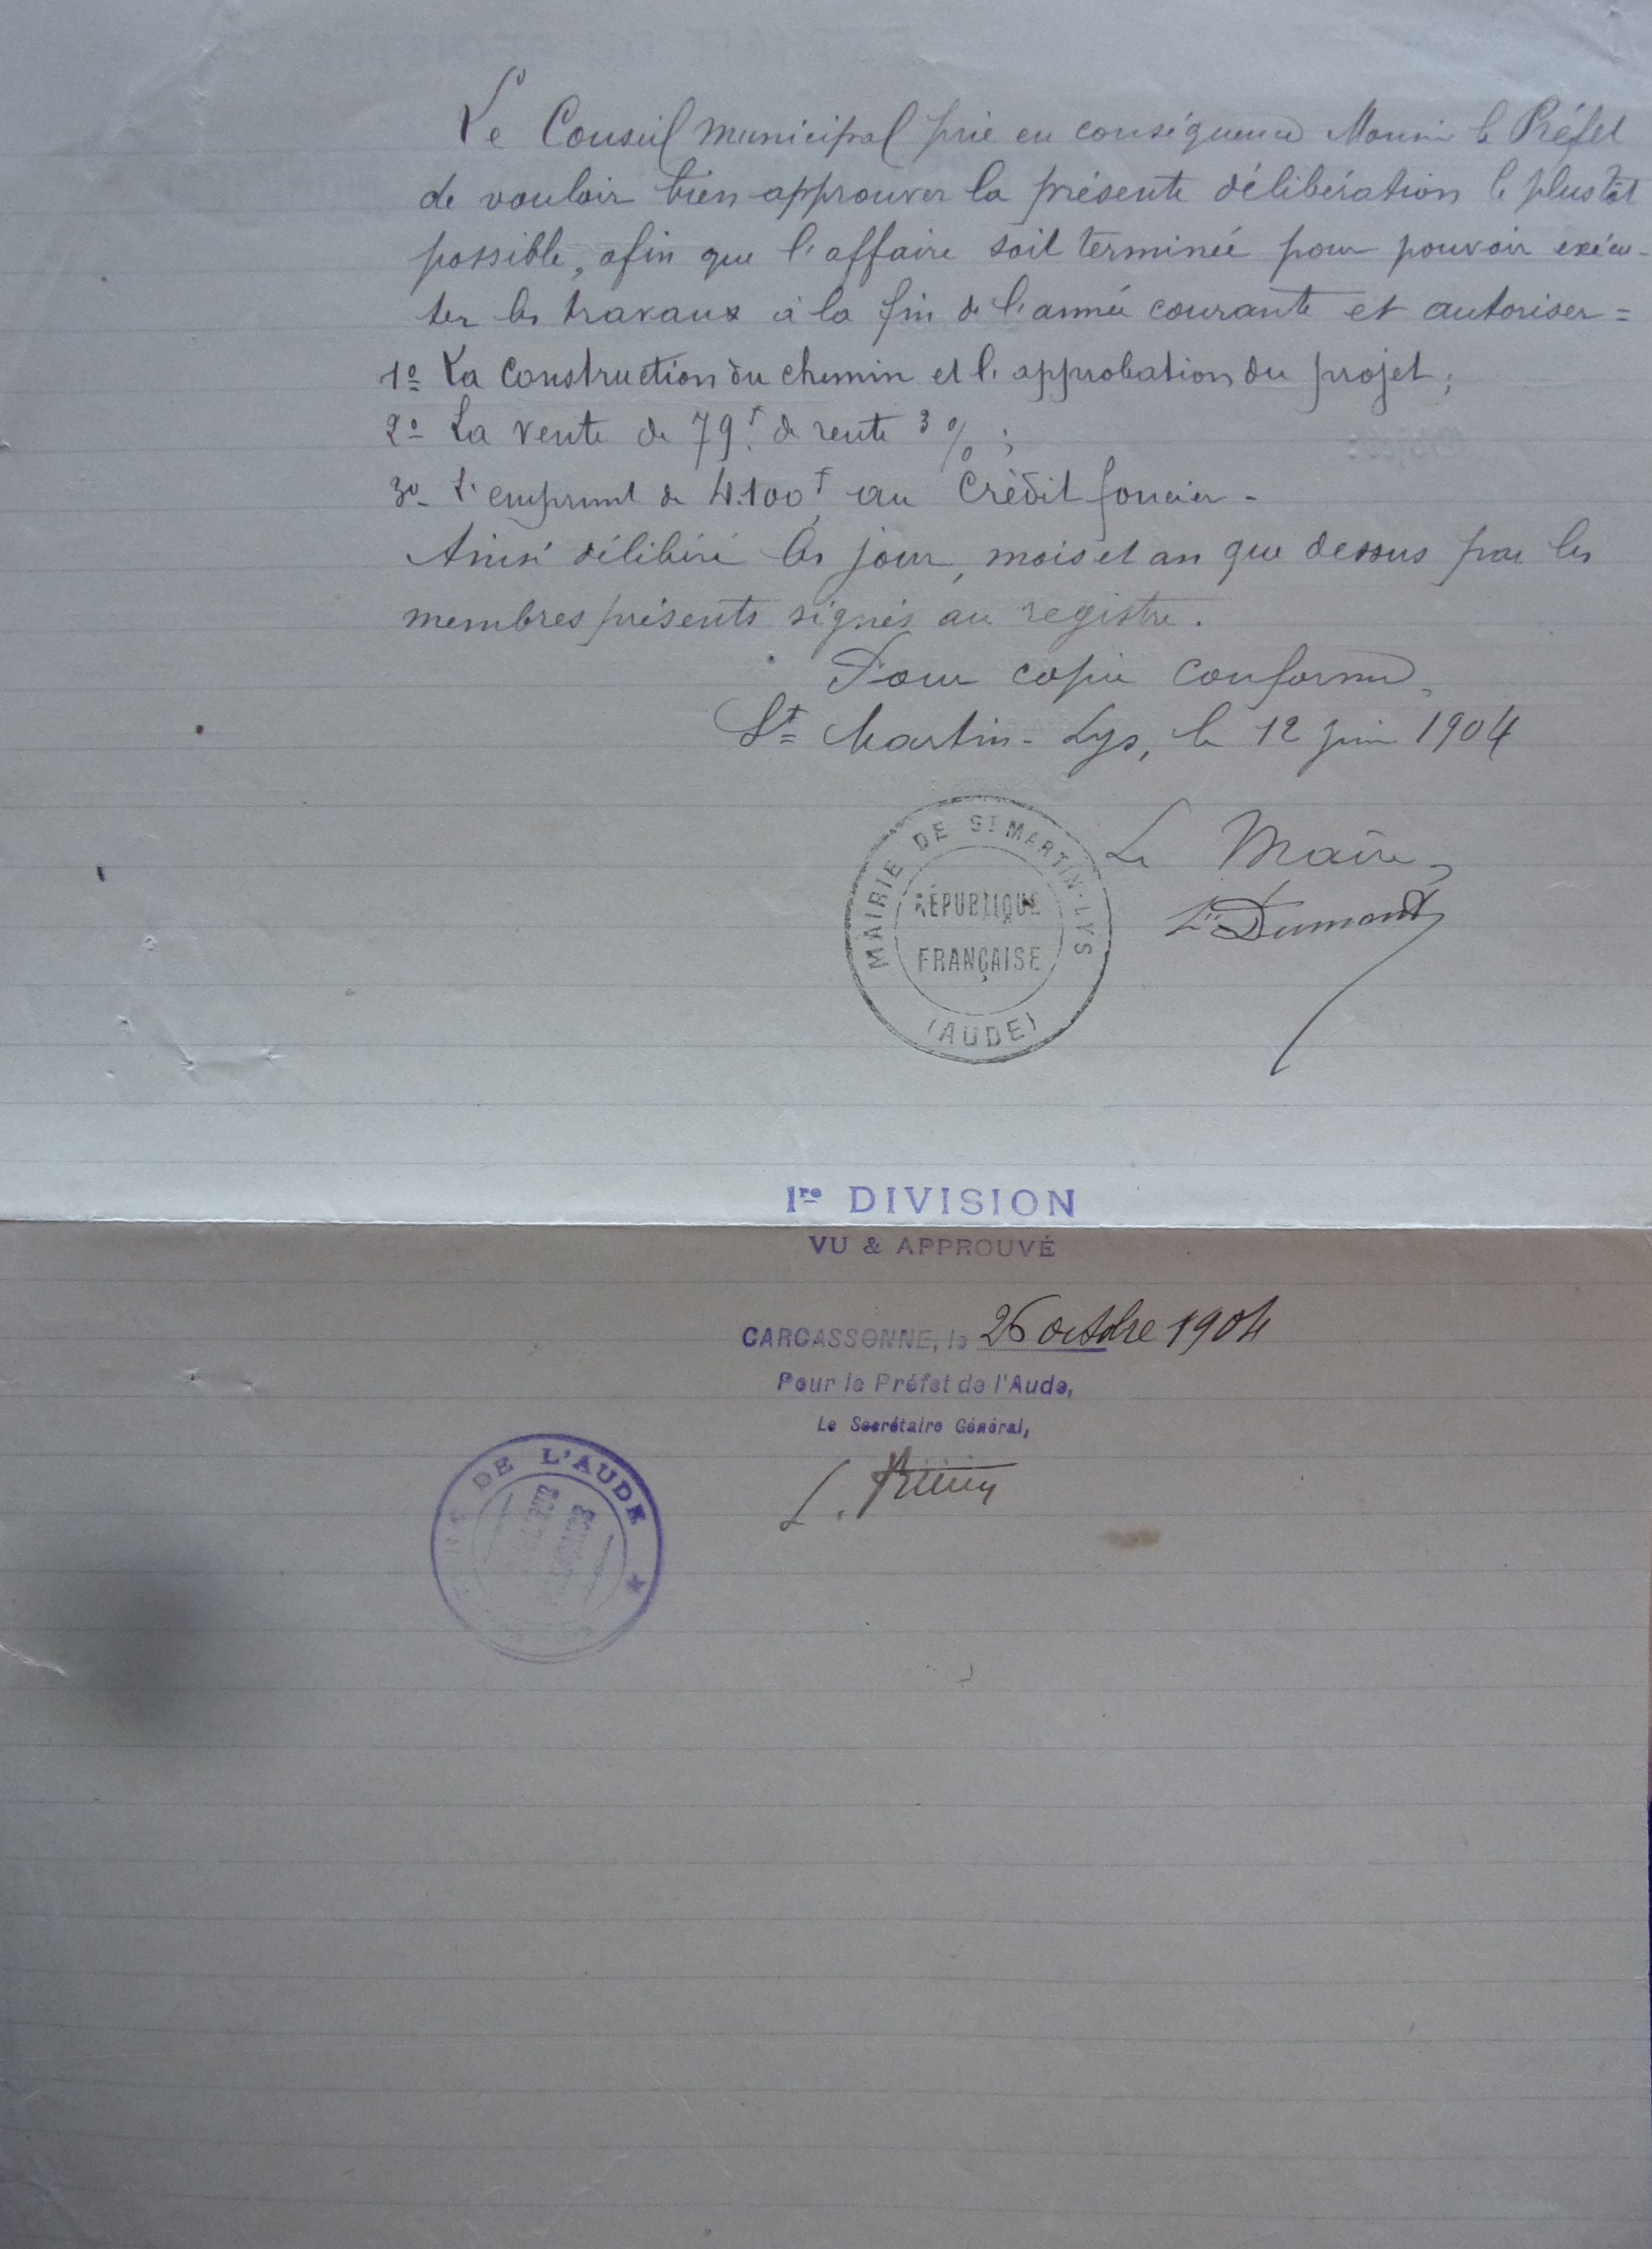 Le Conseil municipal prie en conséquence Monsieur le Préfet
de vouloir bien approuver la présente délibération le plus tôt
possible, afin que l'affaire soit terminée pour pouvoir exécu-
ter les travaux à la fin de l'année courante et autoriser =
1º La Construction du chemin et l'approbation du projet;
2º La vente de 79f. de rente 3 %;
3º L'emprunt de 4.100f, au Crédit foncier -
Ainsi délibéré les jour, mois et an que dessus par les
membres présents signés au registre.
Pour copie conforme,
St Martin-Lys, le 12 juin 1904
MAIRIE DE ST MARTIN-LYS
RÉPUBLIQUE
FRANÇAISE
(AUDE)
Le Maire,
Dumont
1re DIVISION
VU & APPROUVÉ
CARCASSONNE, le 26 octobre 1904
Pour le Préfet de l'Aude,
Le Secrétaire Général,
DE L'AUDE